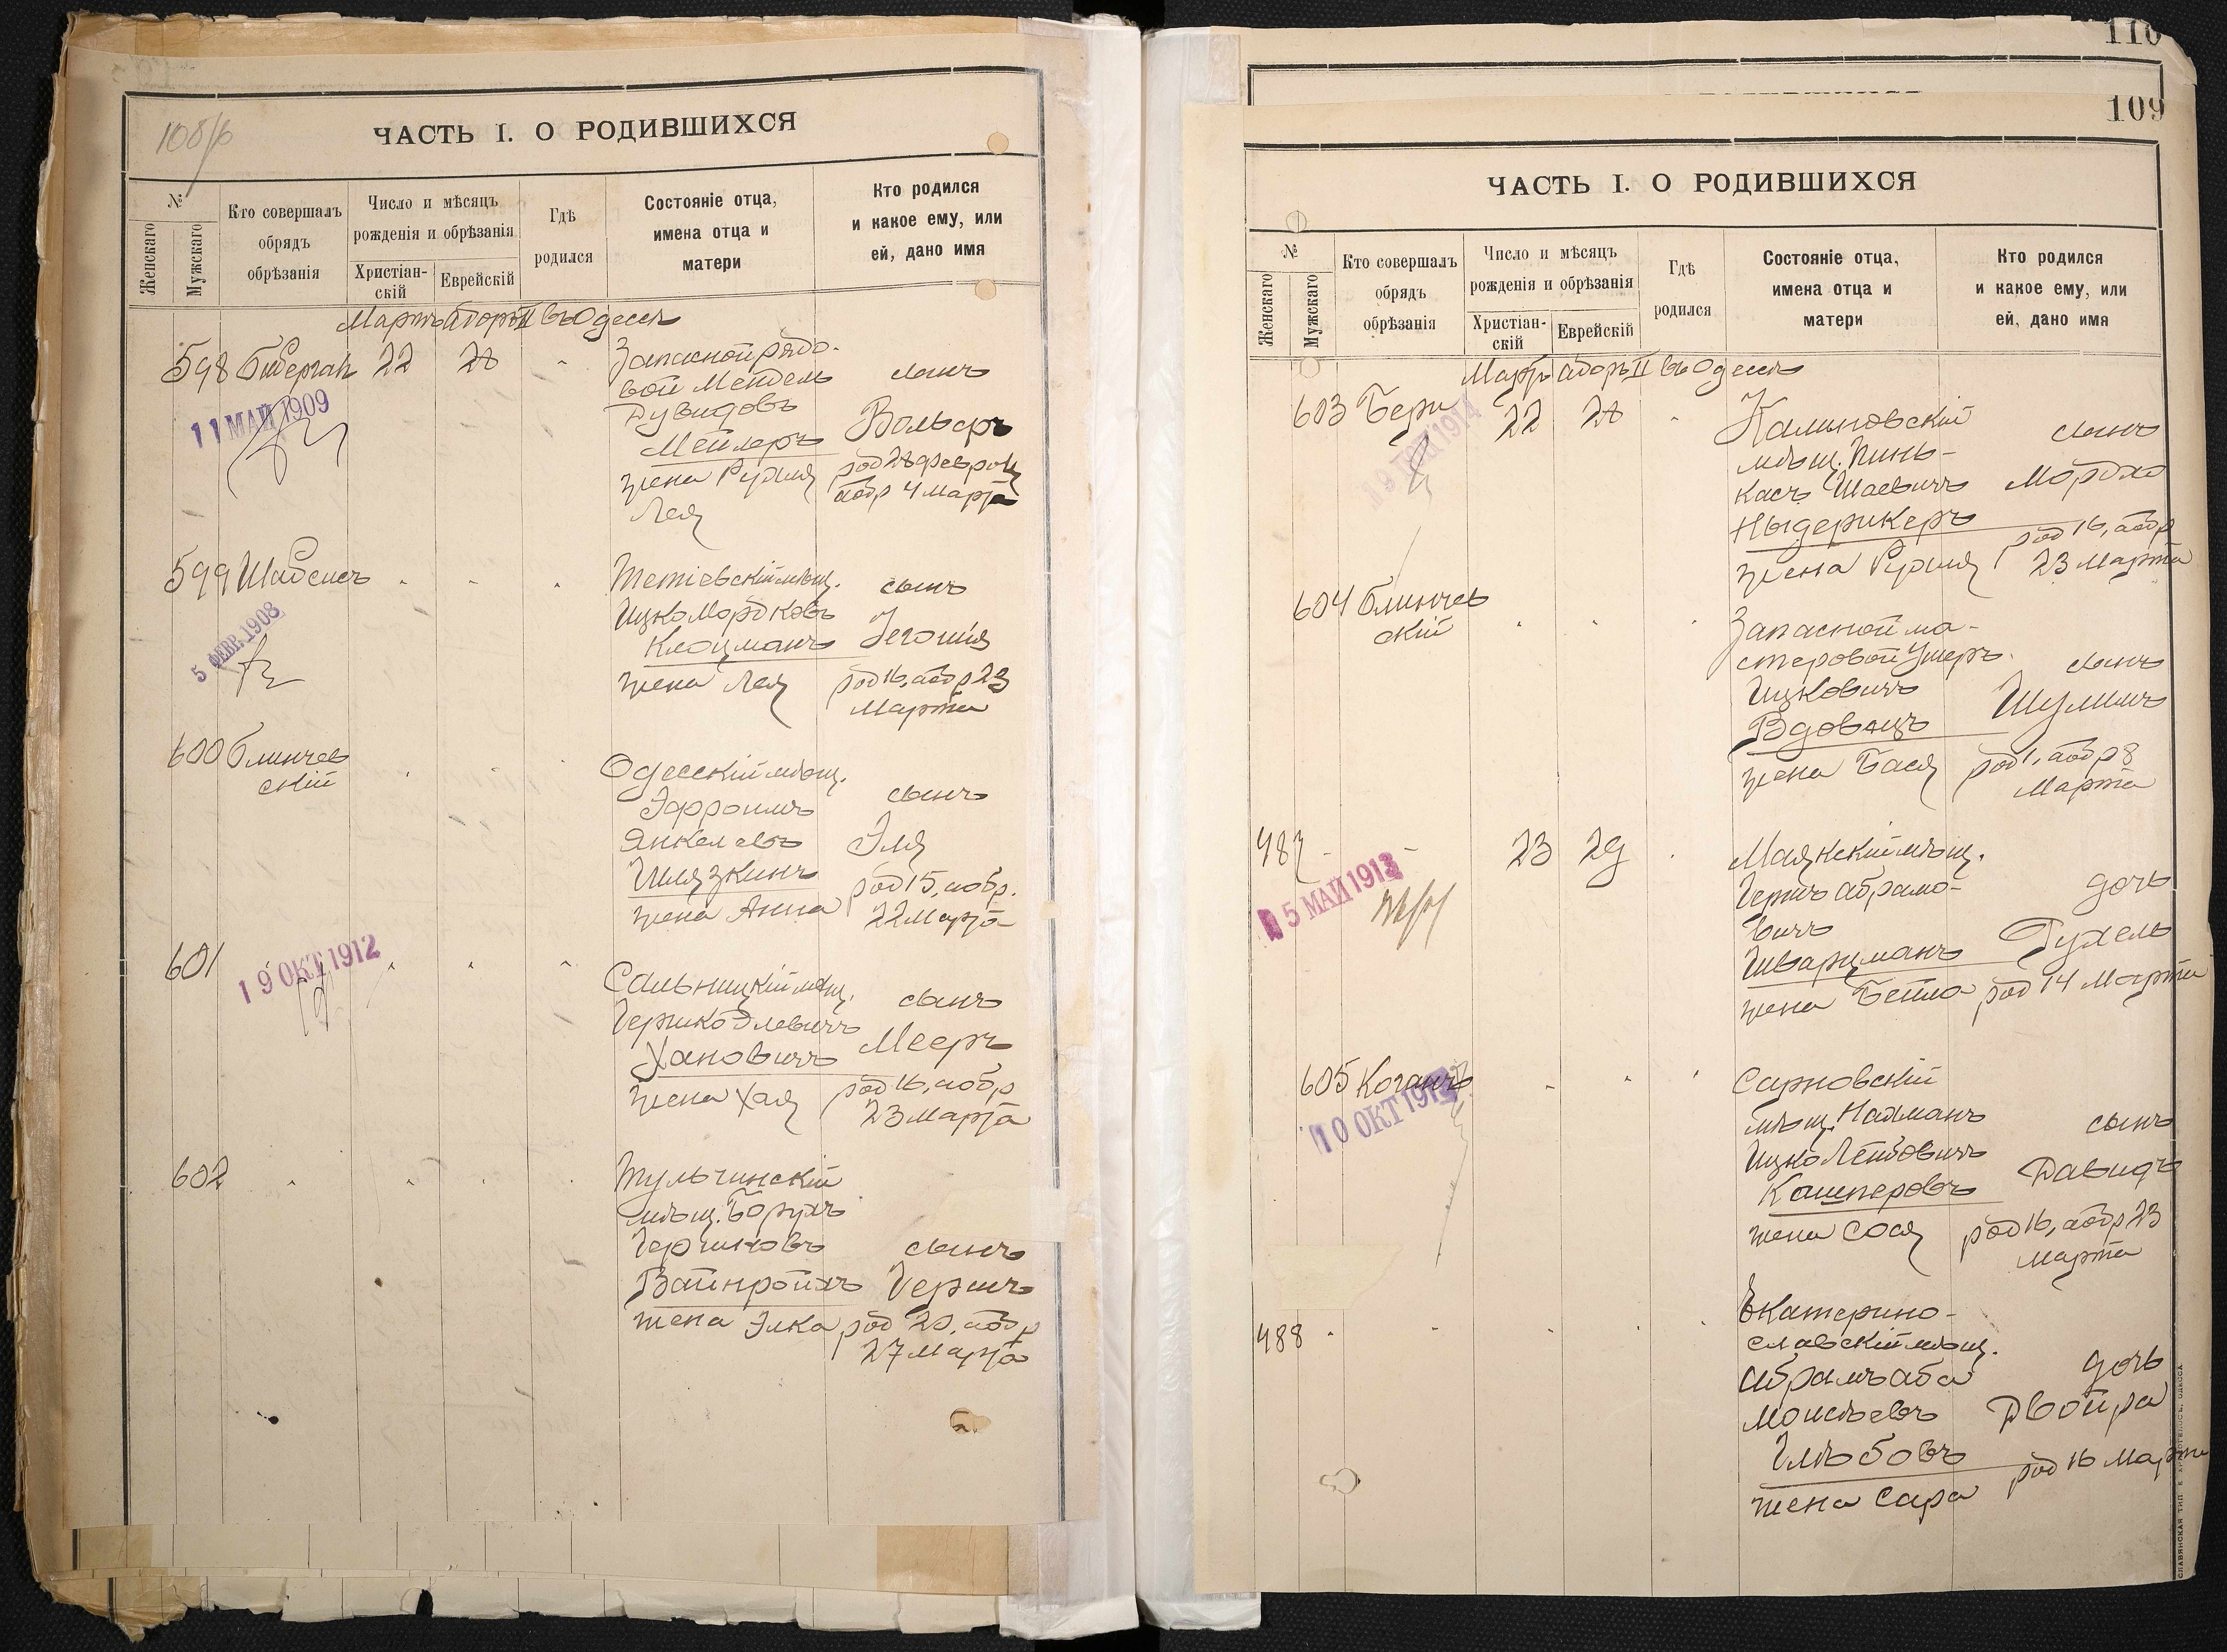 108/б
ЧАСТЬ I. О РОДИВШИХСЯ
№
Женскаго
Мужскаго
Кто совершалъ
обрядъ
обрѣзанія
Число и мѣсяцъ
рожденія и обрѣзанія
Христіан-
скій
Еврейскій
Гдѣ
родился
Состояніе отца,
имена отца и
матери
Кто родился
и какое ему, или
ей, дано имя
Мартъ Адоръ II въ Одессѣ
598 22 28
Запасной рядо-
вой Мендель
Дувидовъ
Мейлеръ
жена Рухля
Лея
сынъ
Вольфъ
род 28 февр
обр 4 марта
11 МАЙ 1909
599 Шабсисъ
Тетіевскій мѣщ.
Ицко Мордковъ
Клоцманъ
жена Лея
сынъ
Іегошія
род 16, обр 23
Марта
5 ФЕВР. 1908
600 Блинчев
скій
Одесскій мѣщ.
Эфроимъ
Янкелевъ
Шлязкинъ
жена Анна
сынъ
Эля
род 15, обр.
22 Марта
601
19 ОКТ 1912
Сальницкій мѣщ.
Гершко Элевичъ
Хановичъ
жена Хая
сынъ
Мееръ
род 16, обр
23 марта
602
Тульчинскій
мѣщ. Борухъ
Гершковъ
Вайнройхъ
жена Элка
сынъ
Гершъ
род 20, обр
27 Марта
110
109
ЧАСТЬ I. О РОДИВШИХСЯ
№
Женскаго
Мужскаго
Кто совершалъ
обрядъ
обрѣзанія
Число и мѣсяцъ
рожденія и обрѣзанія
Христіан-
скій
Еврейскій
Гдѣ
родился
Состояніе отца,
имена отца и
матери
Кто родился
и какое ему, или
ей, дано имя
Мартъ Адоръ II въ Одессѣ
603 22 28
Калиновскій
мѣщ. Пинь-
касъ Шаевичъ
Ныдерикеръ
жена Рухля
сынъ
Мордко
род 16, обр
23 Марта
1914
604 Блинчев
скій
Запасной ма-
стеровой Ушеръ
Ицковичъ
Вдовецъ
жена Бася
сынъ
Шулимъ
род 1, обр 8
Марта
487 23 29
Маякскій мѣщ.
Гершъ Абрамо-
вичъ
Шварцманъ
жена Бейла
дочь
Рухель
род 14 Марта
5 МАЙ 1913
605 Коганъ
Сарновскій
мѣщ. Нахманъ
Ицко Лейбовичъ
Кашперовъ
жена Сося
сынъ
Давидъ
род 16, обр 23
Марта
10 ОКТ
488
Екатерино-
славскій мѣщ.
Абрамъ Аба
Моисѣевъ
Глѣбовъ
жена Сара
дочь
Двойра
род 16 Марта